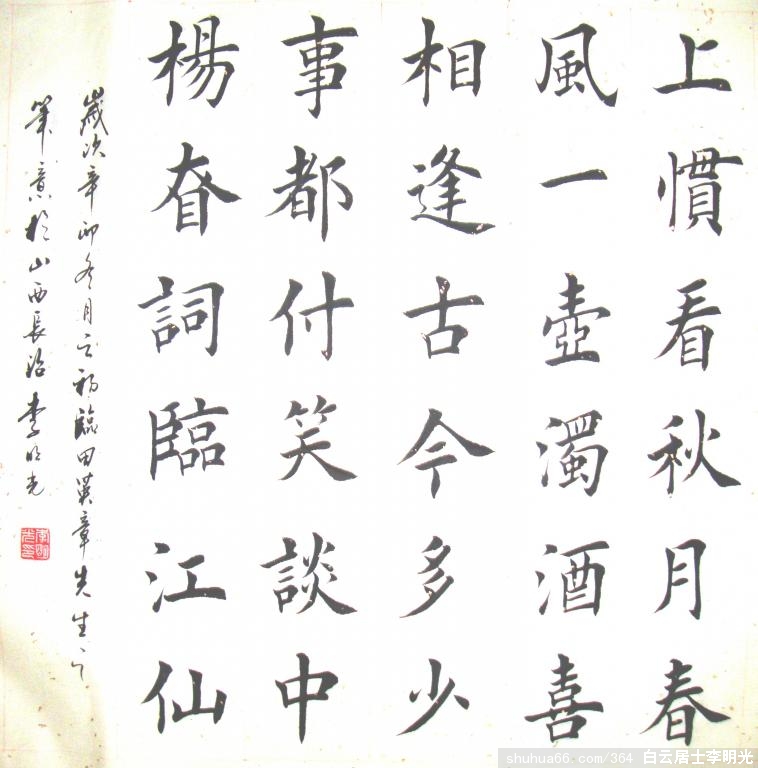 上慣看秋月春
風一壺濁酒喜
相逢古今多少
事都付笑談中
楊眘詞臨江仙
歲次辛卯冬月之初臨田英章先生之
筆意於山西長治李明光
shuhua66.com/364 白云居士李明光